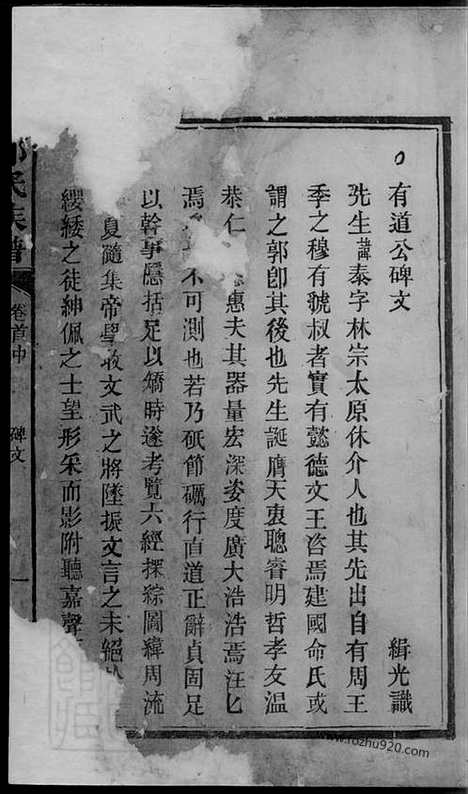 有道公碑文
緝光識
先生諱泰字林宗太原休介人也其先出自有周王
季之穆有虢叔者實有懿德文王咨焉建國命氏或
謂之郭卽其後也先生誕膺天衷聰睿明哲孝友温
恭仁 惠夫其器量宏深姿度廣大浩浩焉汪匕
焉 不可測也若乃砥節礪行直道正辭貞固足
以幹事隱括足以矯時遂考覽六經探綜圖緯周流
夏隨集帝學收文武之將墜振文言之未絕
纓緌之徒紳佩之士望形采而影附聽嘉聲
氏族譜
卷首中
碑文
一
www.rozhu920.com